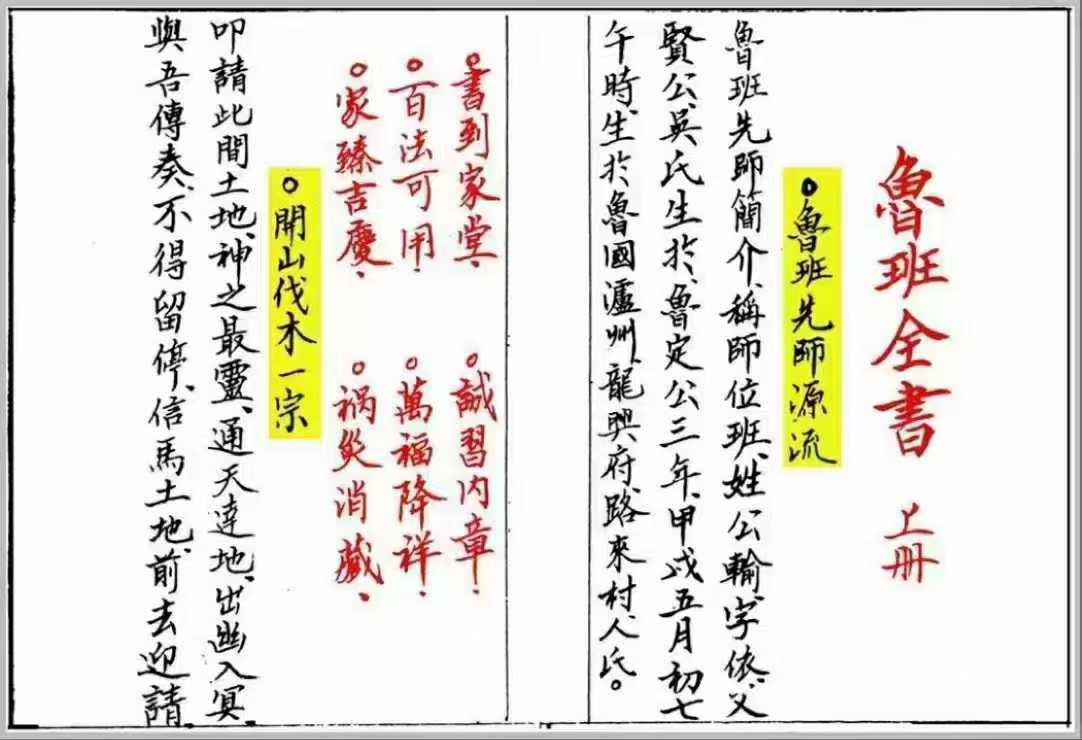 魯班全書 上册
○魯班先師源流
魯班先師簡介、稱師位班、姓公輸、字依、父
賢公、吳氏生於、魯定公三年、甲戌五月初七
午時、生於魯國瀘州、龍興府、路來村、人氏。
○書到家堂、 ○誠習内章、
○百法可用、 ○萬福降祥、
○家臻吉慶、 ○祸災消藏、
○開山伐木一宗
叩請此間土地、神之最靈、通天達地、出幽入冥、
與吾傳奏、不得留停、信馬土地、前去迎請、